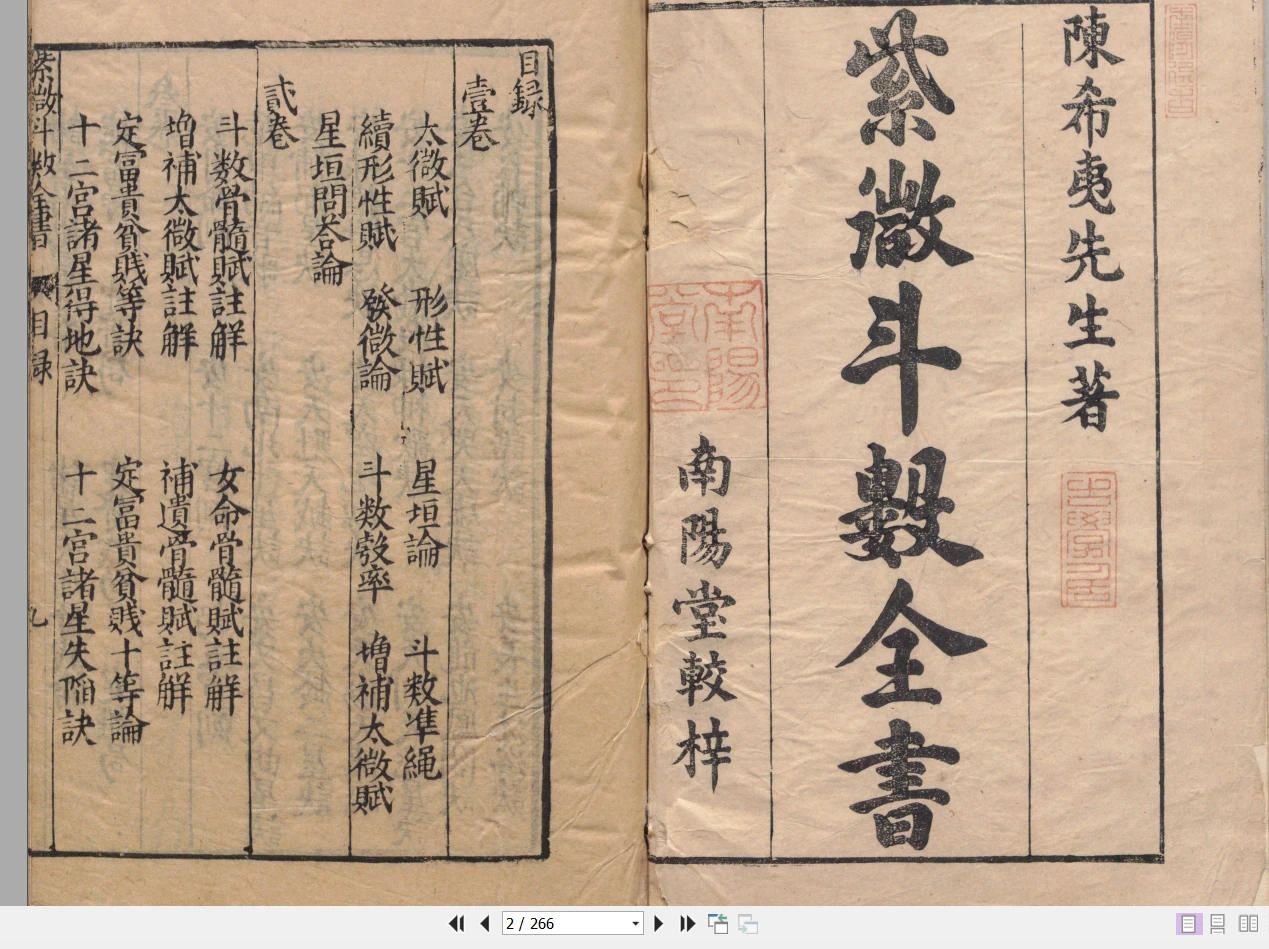 陳希夷先生著
紫微斗數全書
南陽堂較梓
南陽
目録
壹卷
太微賦 形性賦 星垣論 斗数準繩
續形性賦 發微論 斗数彀率 増補太微賦
星垣問荅論
貳卷
斗数骨髓賦註解 女命骨髓賦註解
増補太微賦註解 補遺骨髓賦註解
定富貴貧賎等訣 定富貴貧賎十等論
十二宫諸星得地訣 十二宫諸星失陥訣
紫微斗数全書 目録 九
2 / 266